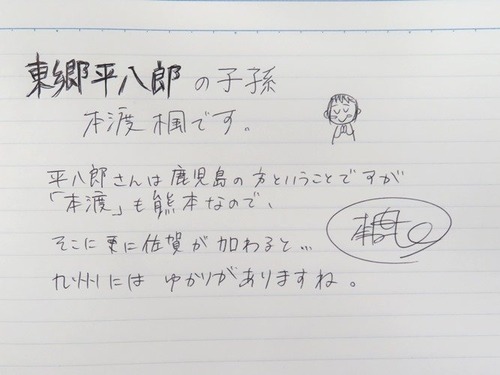 東郷平八郎の子孫
本渡楓です。
平八郎さんは鹿児島の方ということですが
「本渡」も熊本なので、
そこに更に佐賀が加わると…
九州にはゆかりがありますね。